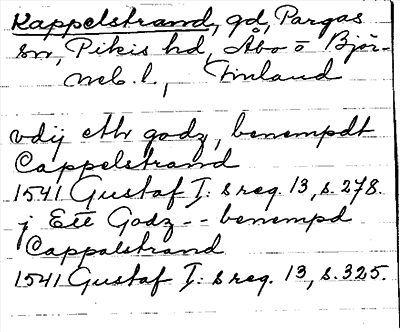 Kappelstrand, gd, Pargas
sn, Pikis hd, Åbo o Björ-
neb. l., Finland
vdij ett godz, benempdt
Cappelstrand
1541 Gustaf I:s reg. 13, s. 278.
j Ett Godz -- benempd
Cappalstrand
1541 Gustaf I:s reg. 13, s. 325.